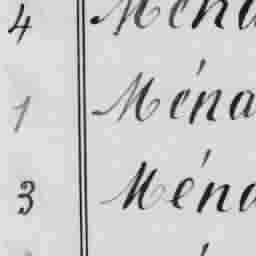 4 Ména
1 Ména
3 Ména